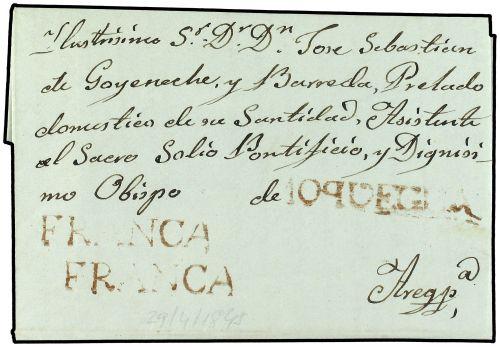 Ylustrisimo Sr. Dr. Dn Jose Sebastian
de Goyeneche, y Barreda, Prelado
domestico de su Santidad, Asistente
al Sacro Solio Pontificio, y Dignisi
mo Obispo de MOQUEGUA
FRANCA
FRANCA
Areqpa,
29/4/1845